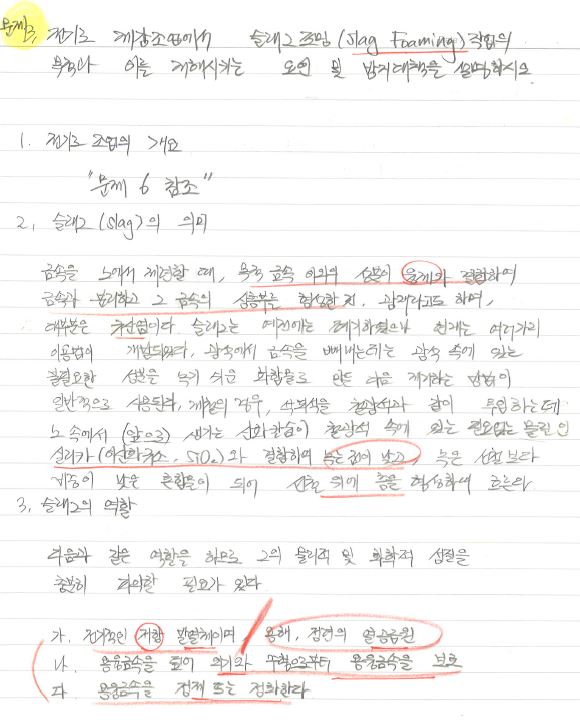 문제3. 전기로 제강조업에서 슬래그 포밍 (Slag Foaming) 작업의
목적과 이를 저해시키는 요인 및 방지대책을 설명하시오
1. 전기로 조업의 개요
"문제 6 참조"
2. 슬래그 (Slag)의 의미
금속을 노에서 제련할 때, 목적 금속 이외의 성분이 용제와 결합하여
금속과 분리하고 그 금속의 상층부를 형성한 것. 광재라고도 하며,
대부분은 규산염이다. 슬래그는 예전에는 폐기하였으나 현재는 여러가지
이용법이 개발되었다. 광석에서 금속을 빼내는데는 광석 속에 있는
불필요한 성분을 녹기 쉬운 화합물로 만든 다음 제거하는 방법이
일반적으로 사용된다. 제철의 경우, 석회석을 철광석과 같이 투입하는데
노 속에서 (앞으로) 생기는 산화칼슘이 철광석 속에 있는 필요없는 물질인
실리카 (이산화규소, SiO2)와 결합하여 녹는점이 낮고, 녹은 선철보다
비중이 낮은 혼합물이 되어 선철 위에 층을 형성하여 흐른다
3. 슬래그의 역할
다음과 같은 역할을 하므로 그의 물리적 및 화학적 성질을
충분히 파악할 필요가 있다
가. 전기적인 저항 발열체이며, 용해, 정련의 열공급원
나. 용융금속을 덮어 외기와 수침으로부터 용융금속을 보호
다. 용융금속을 정제 또는 정화한다